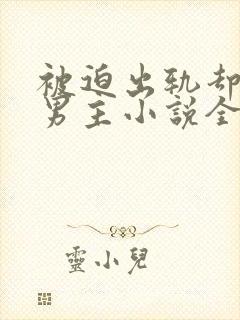 被迫出轨却
男主小说全
靈小兒